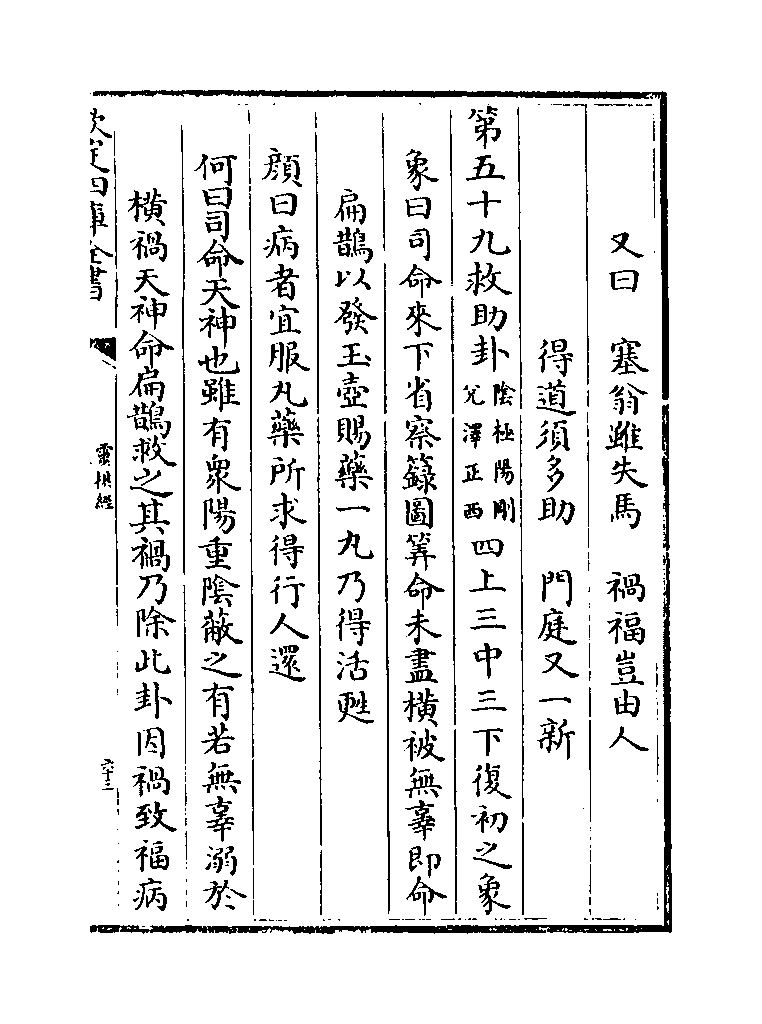 又曰　塞翁雖失馬　禍福豈由人
得道須多助　門庭又一新
第五十九救助卦陰極陽剛兊澤正西四上三中三下復初之象
象曰司命來下省察籙圖筭命未盡橫被無辜即命
扁鵲以發玉壺賜藥一丸乃得活甦
顔曰病者宜服丸藥所求得行人還
何曰司命天神也雖有衆陽重陰蔽之有若無辜溺於
橫禍天神命扁鵲救之其禍乃除此卦因禍致福病
欽定四庫全書
靈棋經
六十三